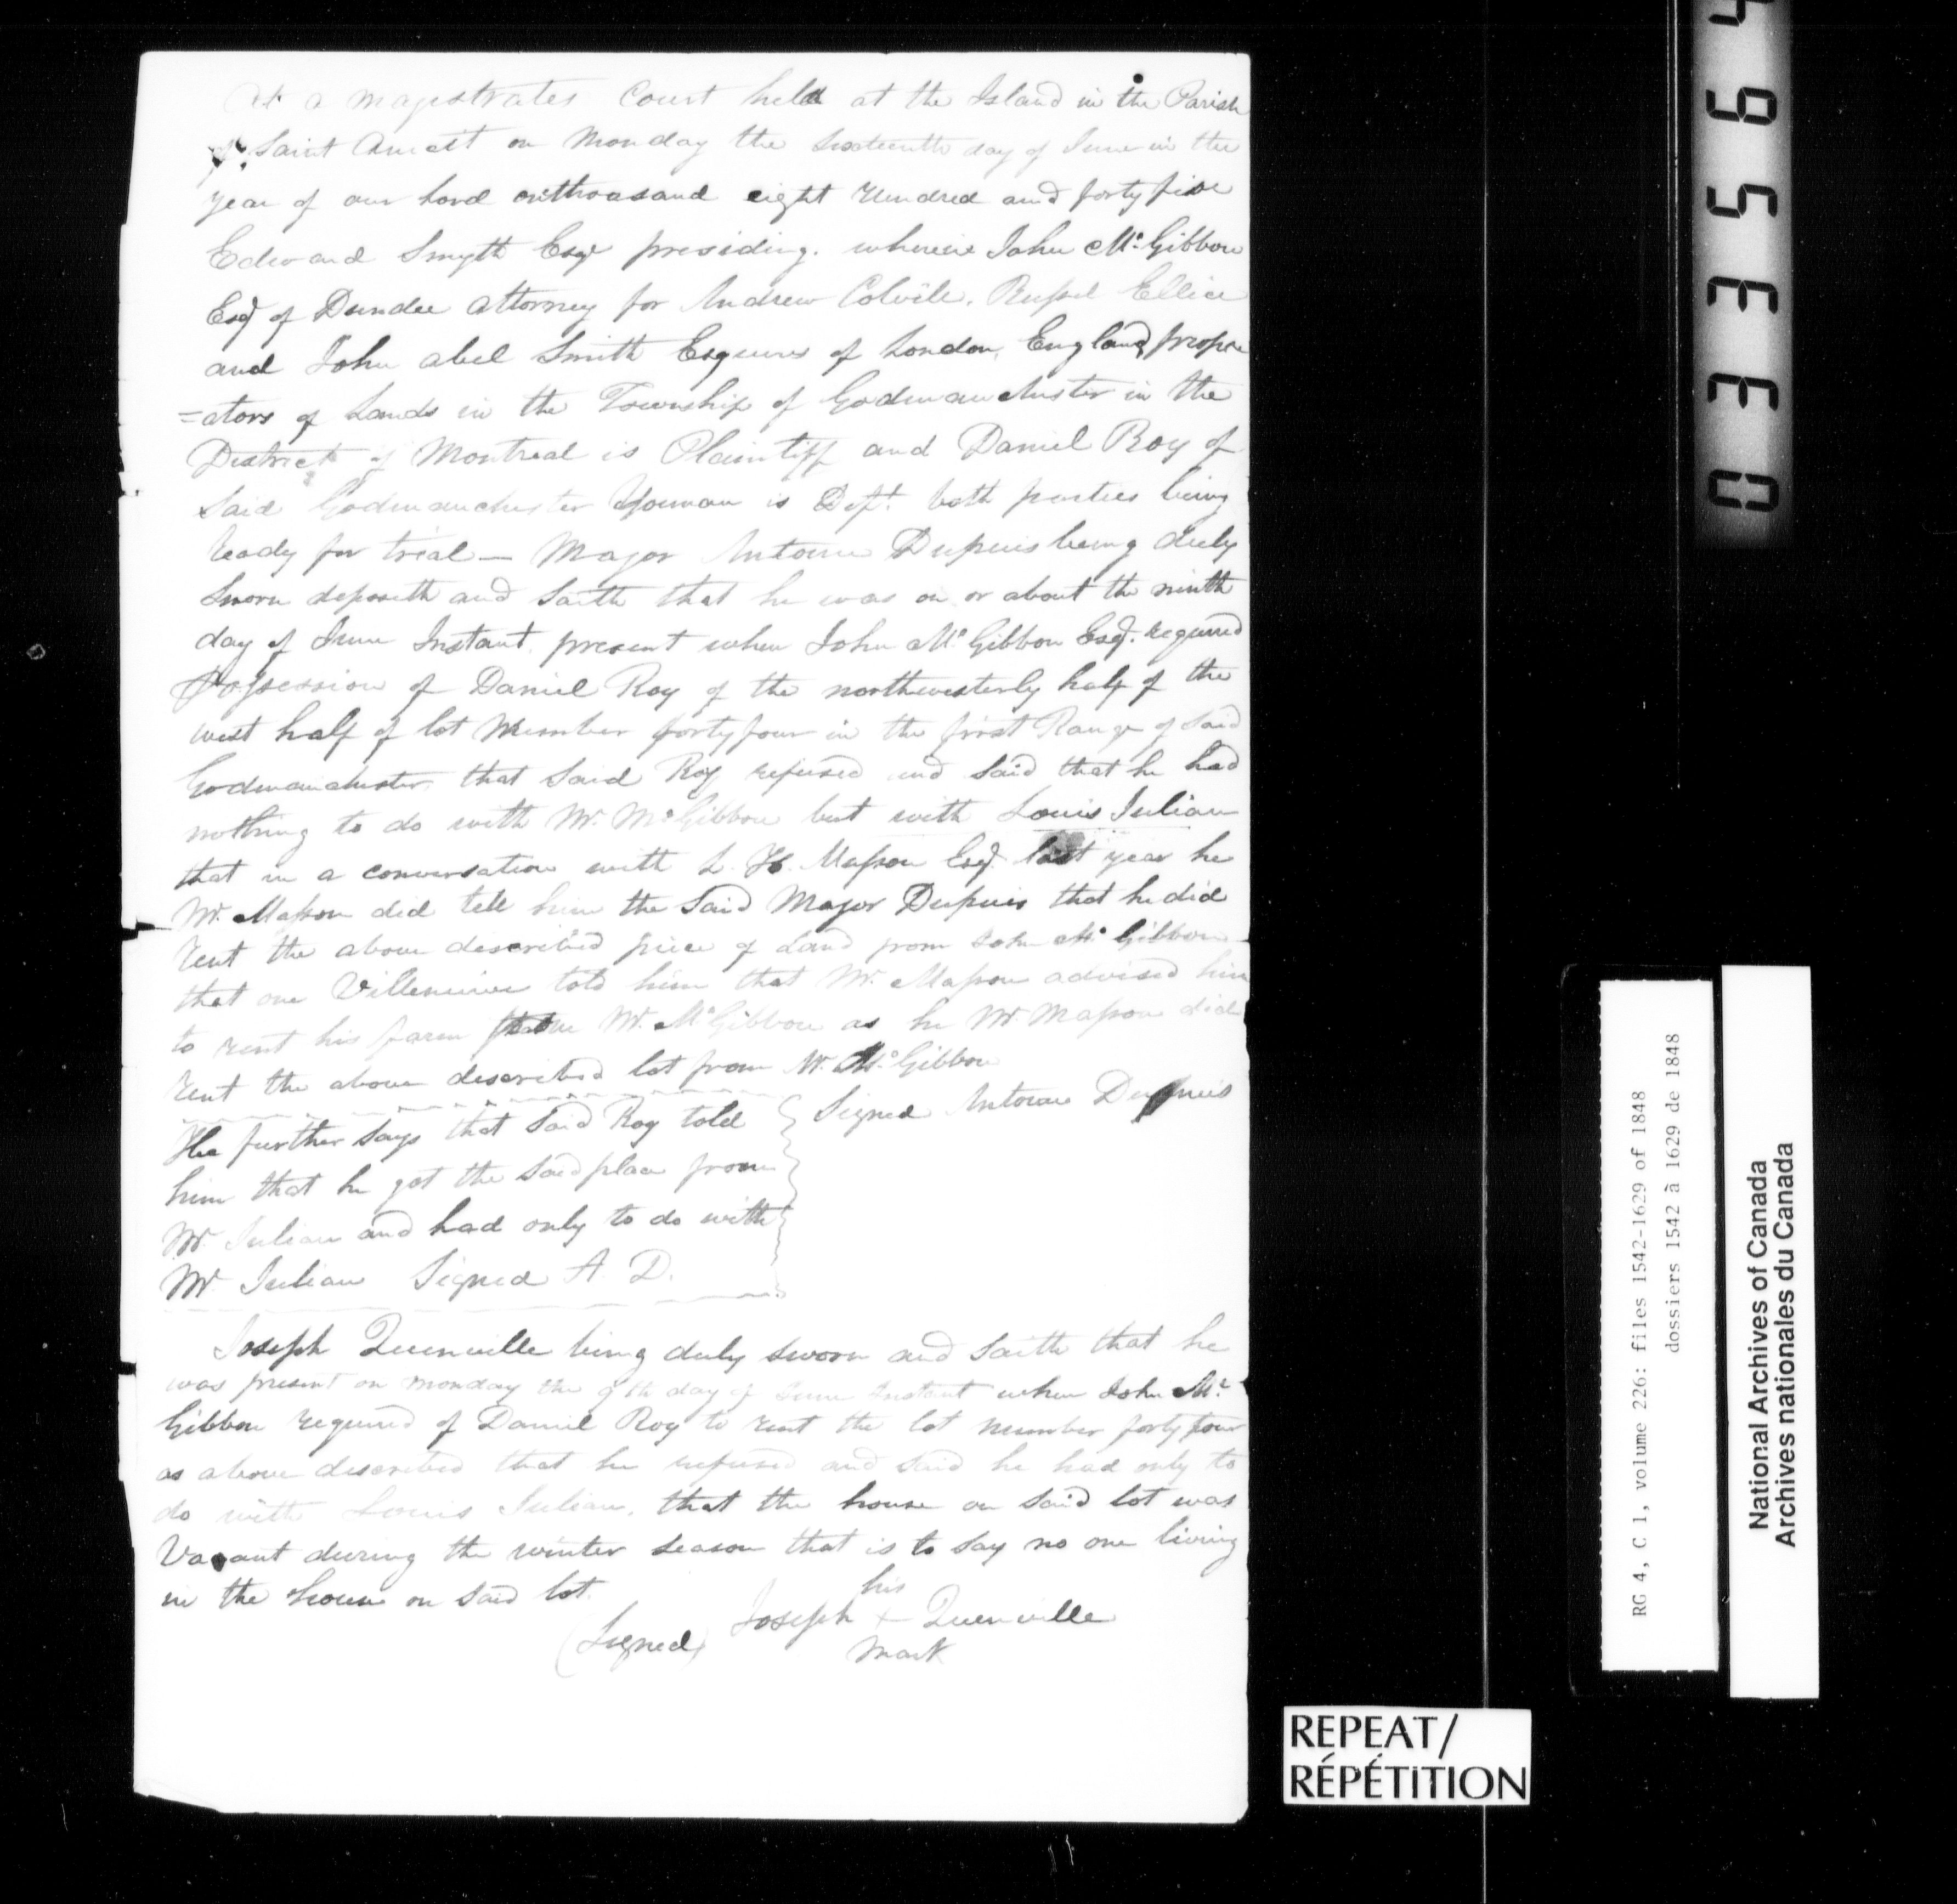 At a Magestrates Court held at the Island in the Parish
of Saint Anicett on Monday the Sixteenth day of June in the
year of our Lord onethousand eight Hundred and forty five
Edward Smyth Esqr presiding. wherein John Mc Gibbon
Esqr of Dundee Attorney for Andrew Colvile, Russel Ellice
and John abel Smith Esquires of London, England, propri
=ators of Lands in the Township of Godmanchester in the
District of Montreal is Plaintiff and Daniel Roy of
Said Godmanchester Yoeman is Deft. both parties being
ready for trial — Major Antoine Dupuis being duly
Sworn deposeth and Saith that he was on or about the ninth
day of June Instant, present when John Mc Gibbon Esqr. required
Possession of Daniel Roy of the northwesterly half of the
west half of lot Number forty four in the first Range of Said
Godmanchester, that Said Roy refused and Said that he had
nothing to do with Mr. McGibbon but with Louis Julian
that in a conversation with L. H. Masson Esqr. last year he
Mr. Masson did tell him the Said Major Dupuis that he did
rent the above described piece of Land from John Mc Gibbon
that one Villeneuve told him that Mr. Masson advised him
to rent his farm from Mr. McGibbon as he Mr. Masson did
rent the above described lot from Mr. Mc Gibbon
Signed Antoine Dupuis
He further Says that Said Roy told
him that he got the Said place from
Mr. Julian and had only to do with
Mr Julian Signed A. D.
Joseph Quenville being duly sworn and Saith that he
was present on Monday the 9th day of June Instant when John Mc
Gibbon required of Daniel Roy to rent the lot number forty four
as above described that he refused and Said he had only to
do with Louis Julian, that the house on Said lot was
Vacant during the winter season that is to say no one living
in the house on Said lot.
his
(Signed) Joseph + Quenville
mark
033564
RG 4, C 1, volume 226: files 1542-1629 of 1848
dossiers 1542 à 1629 de 1848
National Archives of Canada
Archives nationales du Canada
REPEAT/
RÉPÉTITION